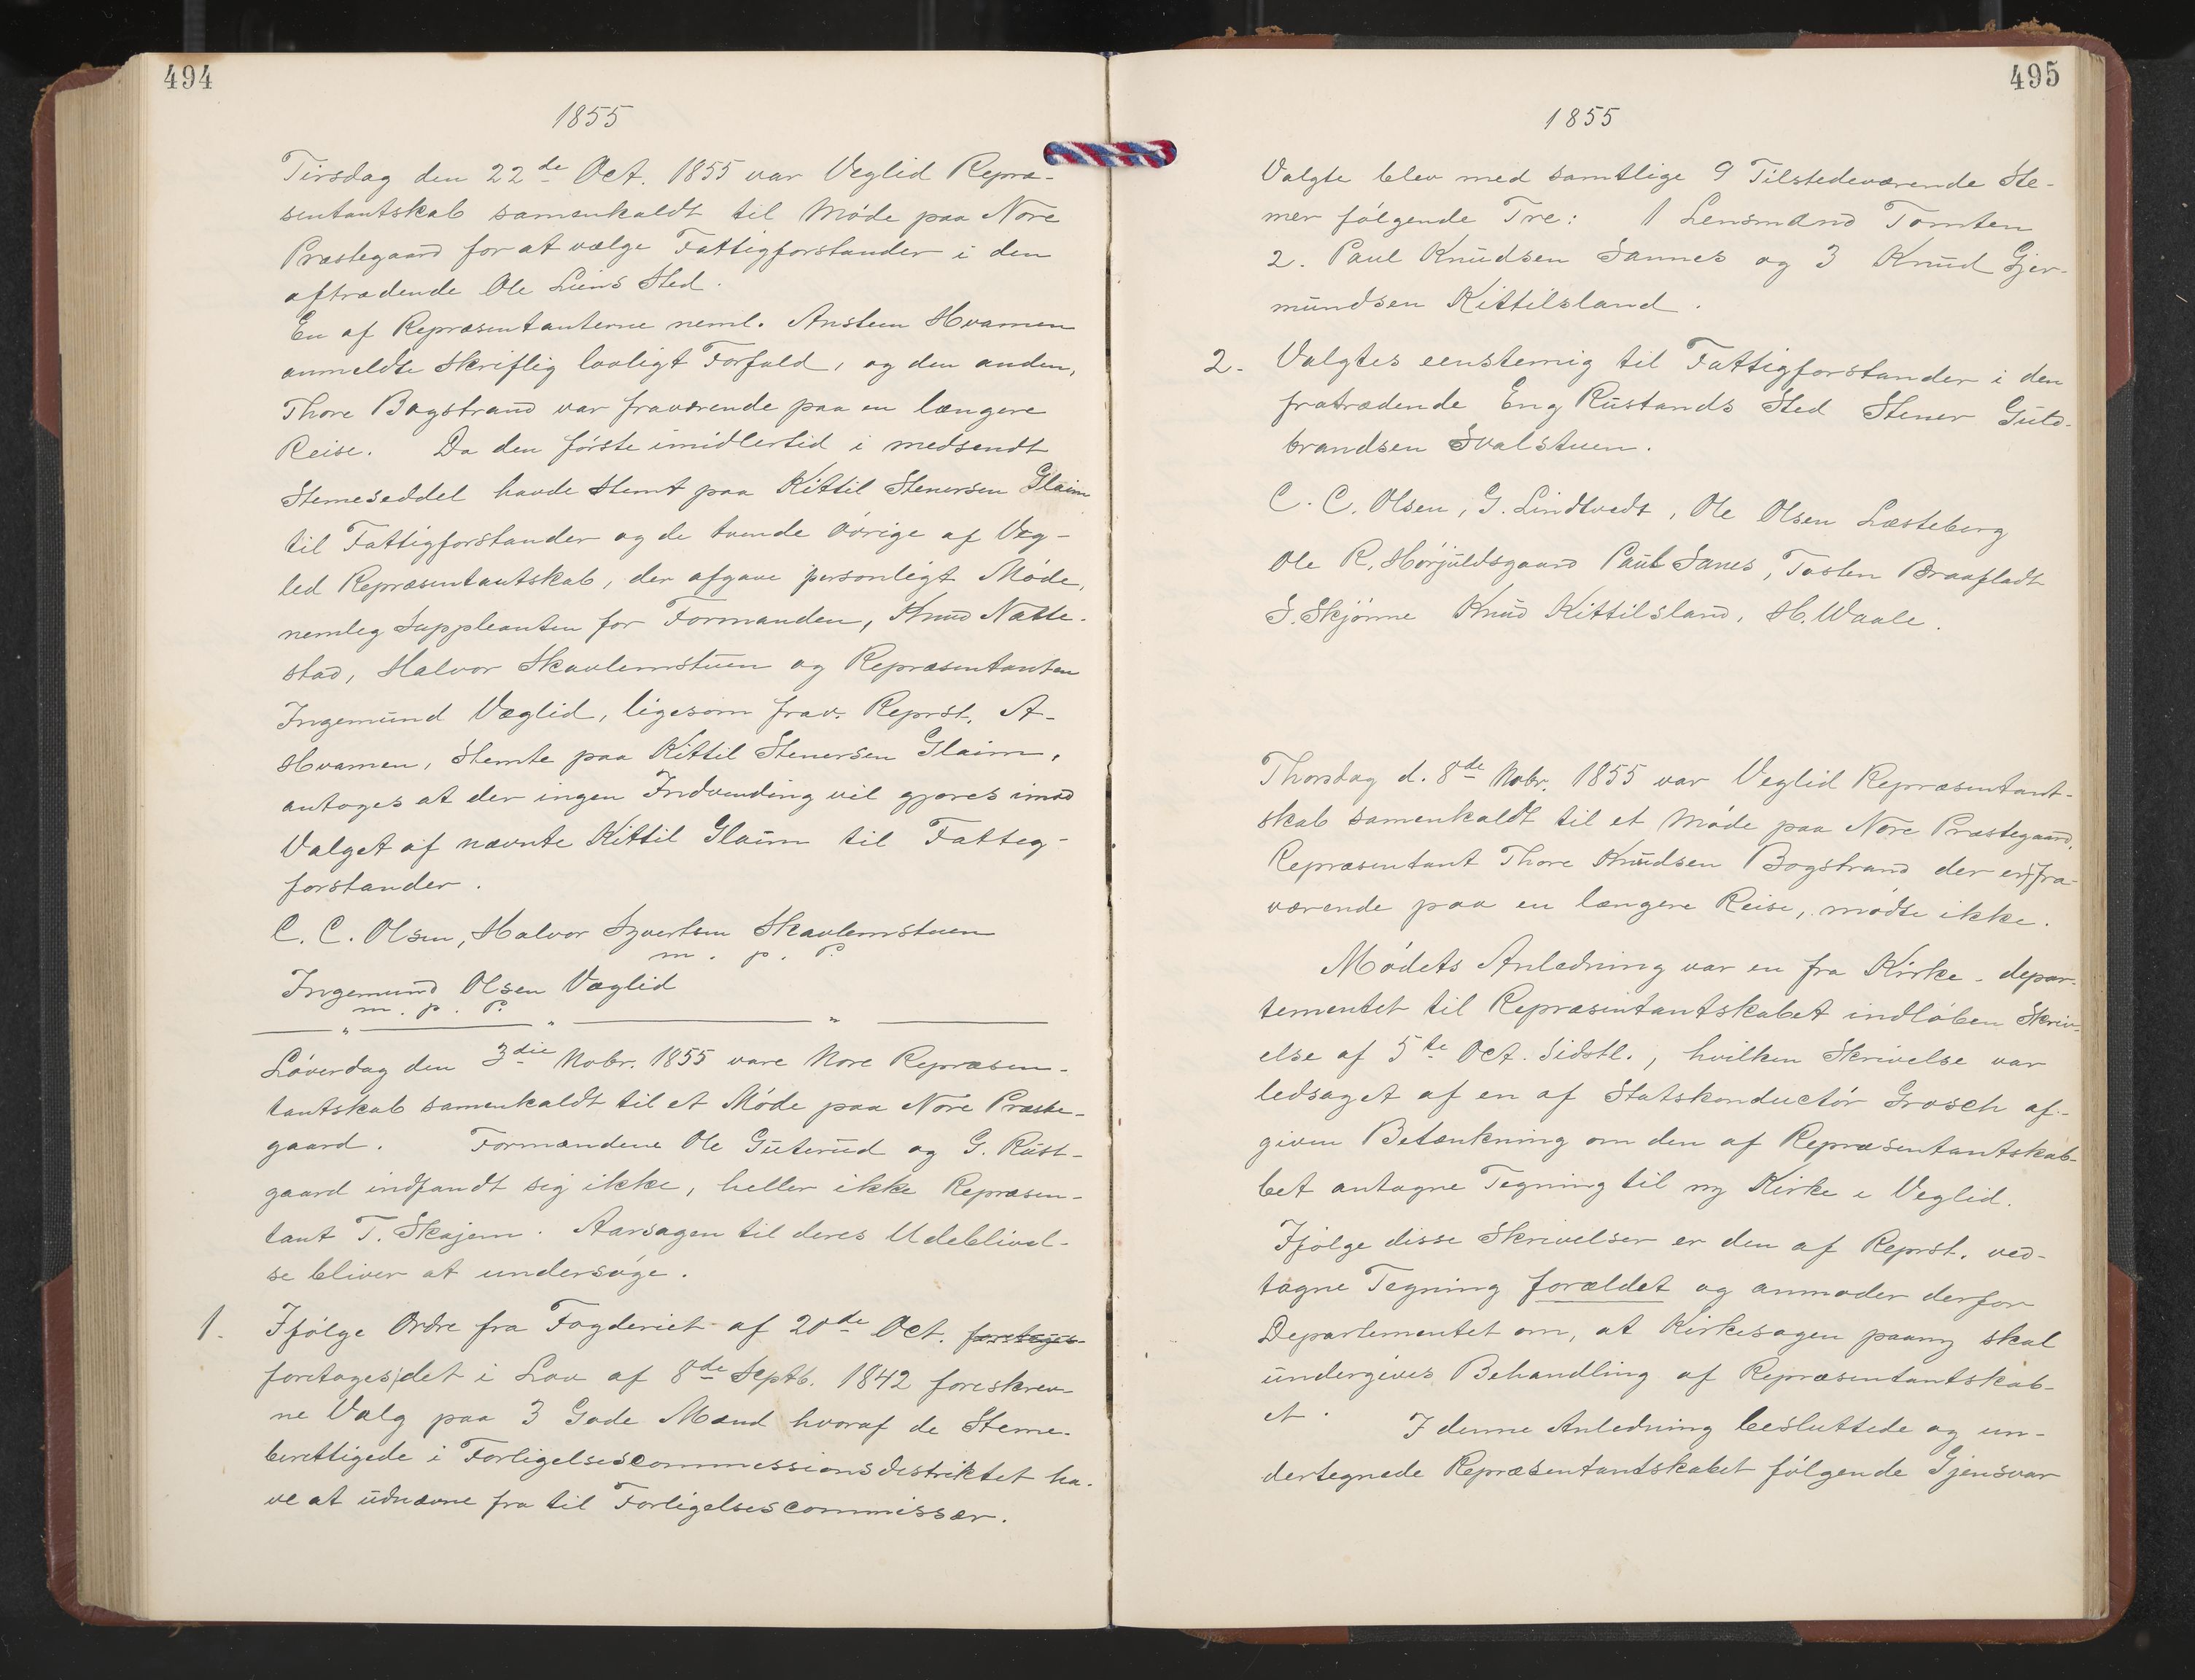 494
1855
Tirsdag den 22de Oct. 1855 var Veglid Repræ-
sentantskab samenkaldt til Møde paa Nore
Præstegaard for at vælge Fattigforstander i den
aftrædende Ole Liens Sted.
En af Repræsentanterne neml. Anstein Hvamen
anmeldte Skriflig lovligt Forfald, og den anden,
Thore Bogstrand var fraværende paa en længere
Reise. Da den første imidlertid i medsendt
Stemeseddel havde stemt paa Kittil Stenersen Glaim
til Fattigforstander og de tvende øvrige af Veg-
led Repræsentantskab, der afgave personligt Møde,
nemleg Suppleanten for Formanden, Knud Natte-
stad, Halvor Skavlemstuen og Repræsentanten
Ingemund Væglid, ligesom frav. Reprst. A-
Hvamen, Stemte paa Kittil Stenersen Glaim,
antoges at der ingen Indvending vil gjøres imod
Valget af nævnte Kittil Glaim til Fatteg-
forstander.
C. C. Olsen, Halvor Syvertsen Skavlemstuen
m. p. P.
Ingemund Olsen Væglid
m. p. P.
Løverdag den 3die Nobr. 1855 vare Nore Repræsen-
tantskab samenkaldt til et Møde paa Nore Præste-
gaard. Formændene Ole Guterud og G. Rust-
gaard indfandt sig ikke, heller ikke Repræsen-
tant T. Skajem. Aarsagen til deres Udeblivel-
se bliver at undersøge.
1. Ifølge Ordre fra Fogderiet af 20de Oct. foretages
foretages det i Lov af 8de Septb. 1842 foreskrev-
ne Valg paa 3 Gode Mænd hvoraf de Steme-
berettigede i Forligelsescommessionsdestriktet ha-
ve at udnævne fra til Forligelsescommissær.
495
1855
Valgte blev med samtlige 9 Tilstedeværende Ste-
mer følgende Tre: 1 Lensmand Tomten
2. Paul Knudsen Sannes og 3 Knud Gjer-
mundsen Kittilsland.
2. Valgtes eenstemig til Fattigforstander i den
fratrædende Eng Rustands Sted Stener Guld-
brandsen Svalstuen.
C. C. Olsen, G. Lindtvedt, Ole Olsen Læsteberg
Ole R. Hørjuldsgaard Paul Sanes, Tosten Braafladt
S. Skjønne Knud Kittilsland, H. Waale.
Thorsdag d. 8de Nobr. 1855 var Veglid Repræsentant-
skab samenkaldt til et Møde paa Nore Præstegaard.
Repræsentant Thore Knudsen Bogstrand der er fra-
værende paa en længere Reise, mødte ikke.
Mødets Anledning var en fra Kirke-depar-
tementet til Repræsentantskabet indløben Skriv-
else af 5te Oct. Sidstl., hvilken Skrivelse var
ledsaget af en af Statskonductør Grosch af-
given Betænkning om den af Repræsentantskab-
bet antagne Tegning til ny Kirke i Veglid.
Ifølge disse Skrivelser er den af Reprst. ved-
tagne Tegning forældet og anmoder derfor
Departementet om, at Kirkesagen paany skal
undergives Behandling af Repræsentantskab-
et. I denne Anledning besluttede og un-
dertegnede Repræsentantskabet følgende Gjensvar